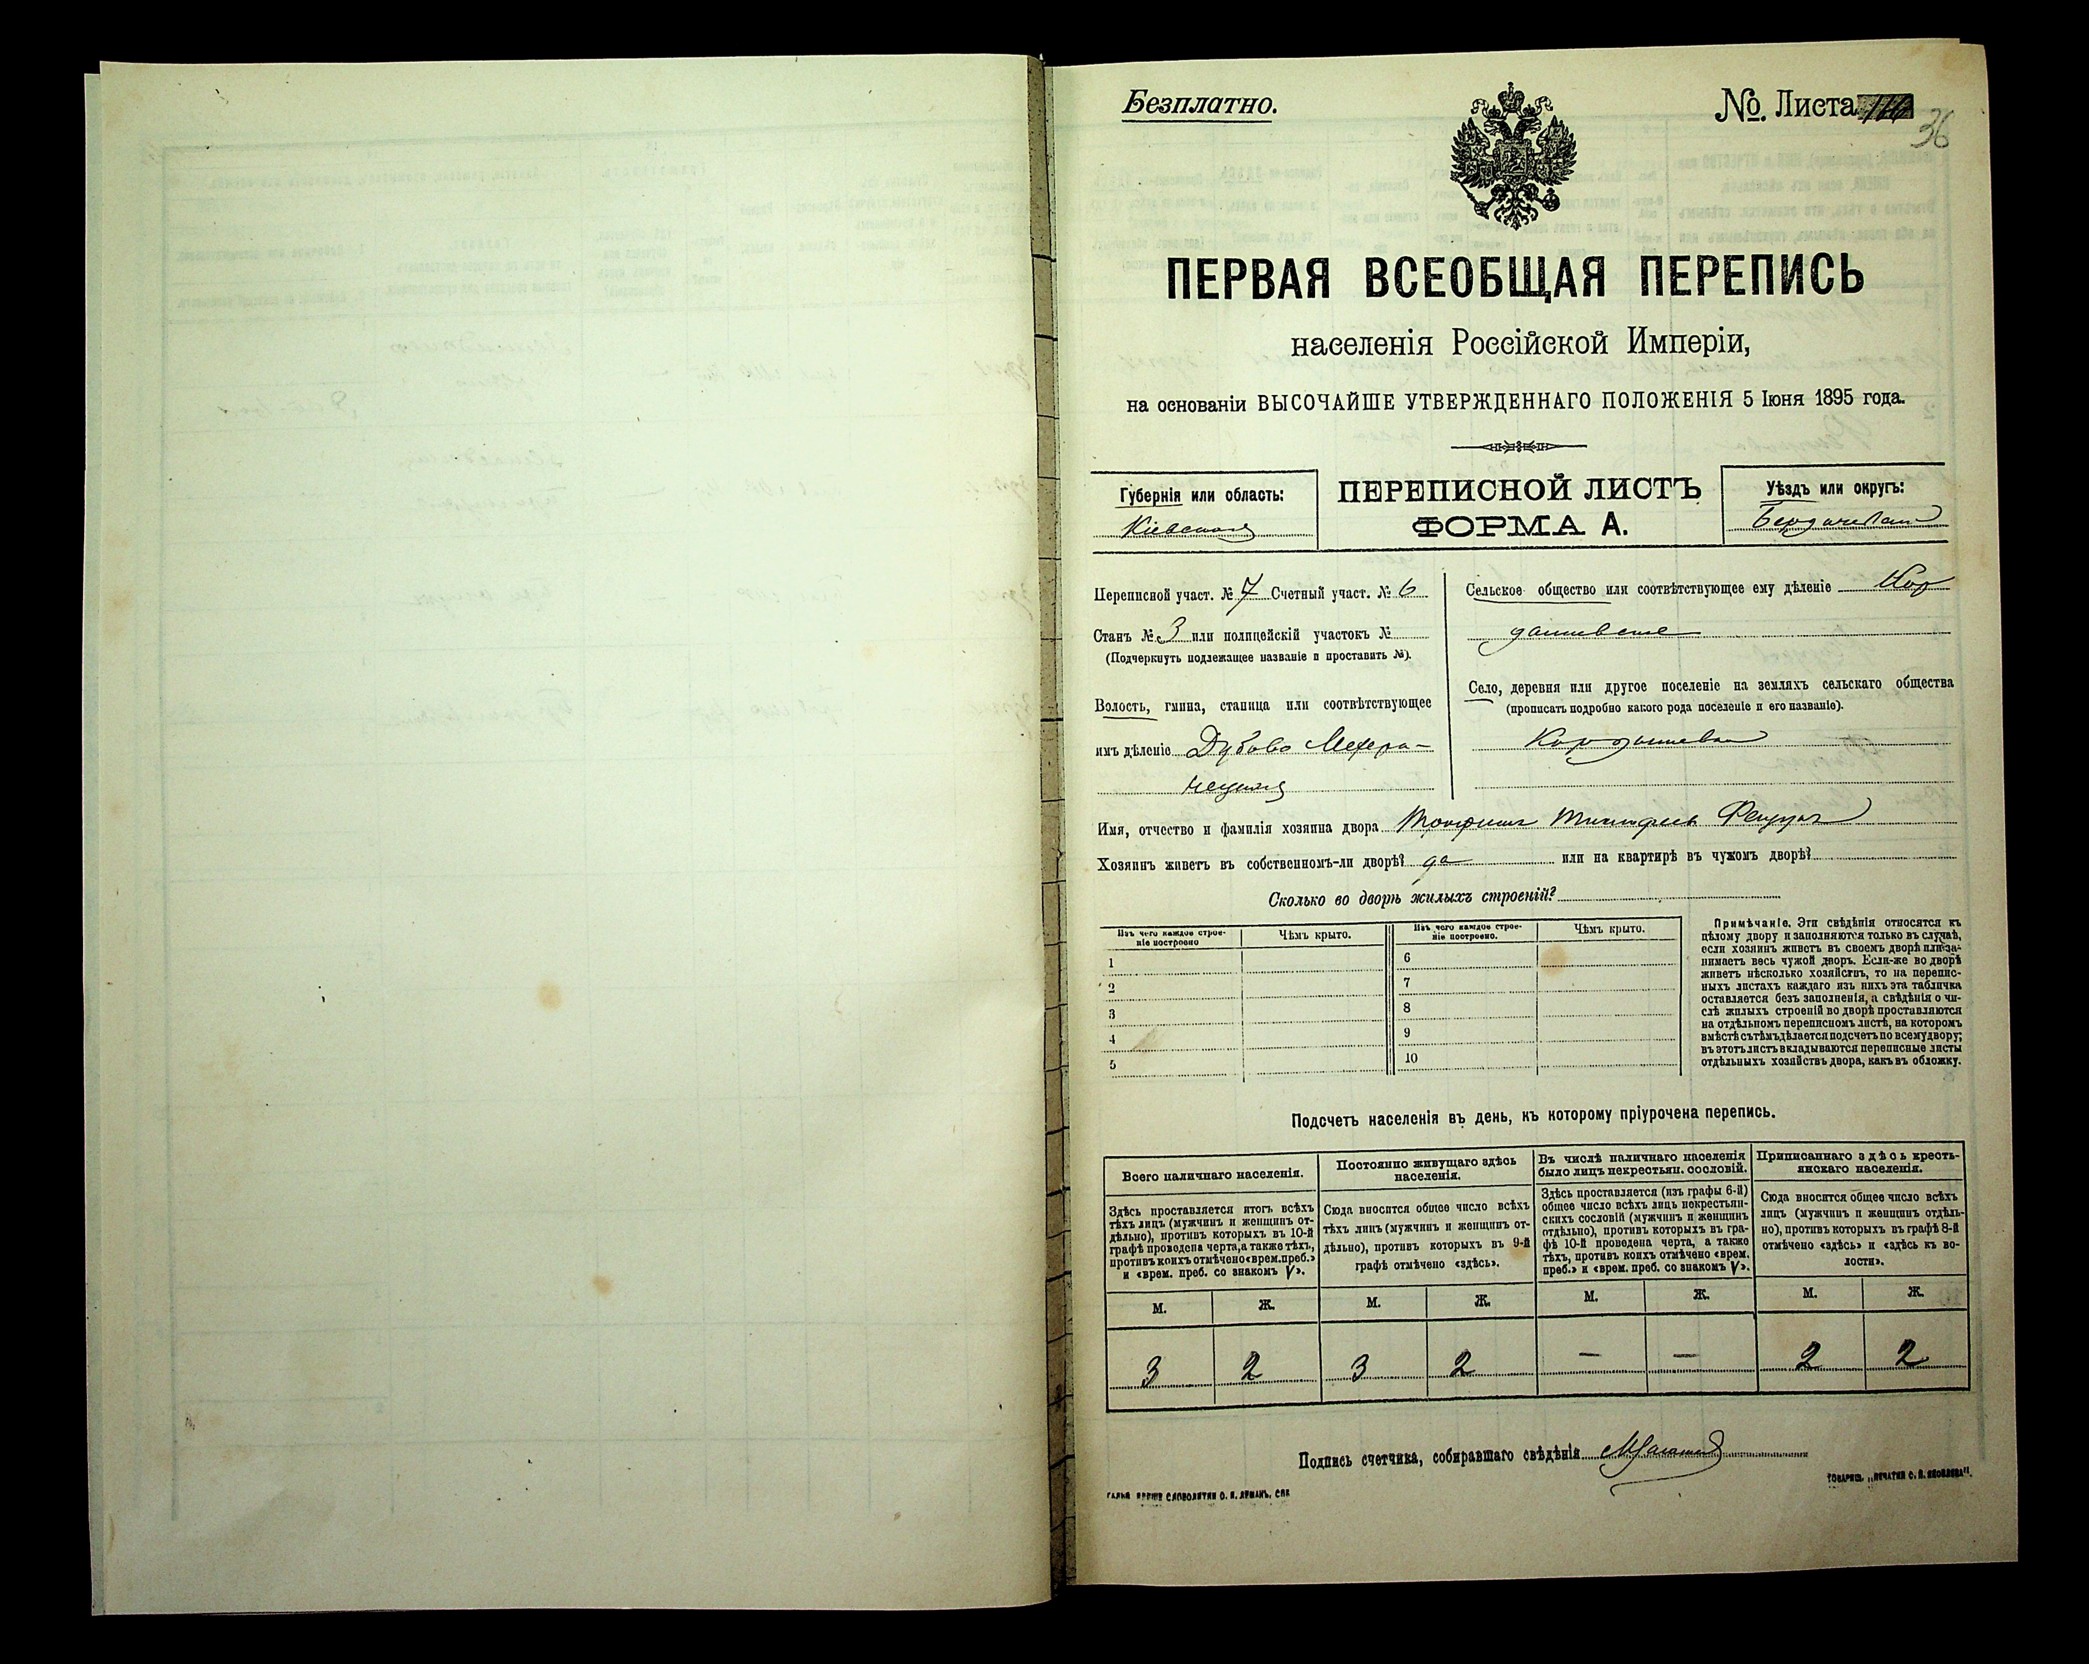 Безплатно.
№ Листа 116
36
ПЕРВАЯ ВСЕОБЩАЯ ПЕРЕПИСЬ
населенія Россійской Имперіи,
на основаніи ВЫСОЧАЙШЕ УТВЕРЖДЕННАГО ПОЛОЖЕНІЯ 5 Іюня 1895 года.
Губернія или область:
Кіевская
ПЕРЕПИСНОЙ ЛИСТЪ
ФОРМА А.
Уѣздъ или округъ:
Бердичевскій
Переписной участ. № 7 Счетный участ. № 6
Станъ № 3 или полицейскій участокъ №
(Подчеркнуть подлежащее названіе и проставить №).
Волость, гмина, станица или соотвѣтствующее
имъ дѣленіе Дубово Махари-
нецкая
Сельское общество или соотвѣтствующее ему дѣленіе Кор
дышевское
Село, деревня или другое поселеніе на земляхъ сельскаго общества
(прописать подробно какого рода поселеніе и его названіе).
Кордышевка
Имя, отчество и фамилія хозяина двора
Хозяинъ живетъ въ собственномъ-ли дворѣ? да или на квартирѣ въ чужомъ дворѣ?
Сколько во дворѣ жилыхъ строеній?
Изъ чего каждое строе-
ніе построено
Чѣмъ крыто.
Изъ чего каждое строе-
ніе построено.
Чѣмъ крыто.
1
2
3
4
5
6
7
8
9
10
Примѣчаніе. Эти свѣдѣнія относятся къ
цѣлому двору и заполняются только въ случаѣ,
если хозяинъ живетъ въ своемъ дворѣ или за-
нимаетъ весь чужой дворъ. Если-же во дворѣ
живетъ нѣсколько хозяйствъ, то на перепис-
ныхъ листахъ каждаго изъ нихъ эта табличка
оставляется безъ заполненія, а свѣдѣнія о чи-
слѣ жилыхъ строеній во дворѣ проставляются
на отдѣльномъ переписномъ листѣ, на которомъ
вмѣстѣ съ тѣмъ дѣлается подсчетъ по всему двору;
въ этотъ листъ вкладываются переписные листы
отдѣльныхъ хозяйствъ двора, какъ въ обложку.
Подсчетъ населенія въ день, къ которому пріурочена перепись.
Всего наличнаго населенія.
Здѣсь проставляется итогъ всѣхъ
тѣхъ лицъ (мужчинъ и женщинъ от-
дѣльно), противъ которыхъ въ 10-й
графѣ проведена черта, а также тѣхъ,
противъ коихъ отмѣчено «врем. преб.»
и «врем. преб. со знакомъ V».
Постоянно живущаго здѣсь
населенія.
Сюда вносится общее число всѣхъ
тѣхъ лицъ (мужчинъ и женщинъ от-
дѣльно), противъ которыхъ въ 9-й
графѣ отмѣчено «здѣсь».
Въ числѣ наличнаго населенія
было лицъ некрестьян. сословій.
Здѣсь проставляется (изъ графы 6-й)
общее число всѣхъ лицъ некрестьян-
скихъ сословій (мужчинъ и женщинъ
отдѣльно), противъ которыхъ въ гра-
фѣ 10-й проведена черта, а также
тѣхъ, противъ коихъ отмѣчено «врем.
преб.» и «врем. преб. со знакомъ V».
Приписаннаго здѣсь кресть-
янскаго населенія.
Сюда вносится общее число всѣхъ
лицъ (мужчинъ и женщинъ отдѣль-
но), противъ которыхъ въ графѣ 8-й
отмѣчено «здѣсь» и «здѣсь къ во-
лости».
М. Ж. М. Ж. М. Ж. М. Ж.
3 2 3 2 — — 2 2
Подпись счетчика, собиравшаго свѣдѣнія
СЛОВОЛИТНИ О. И. ЛЕМАНЪ, СПБ
ТОВАРИЩ. „ПЕЧАТНИ С. П. ЯКОВЛЕВА".